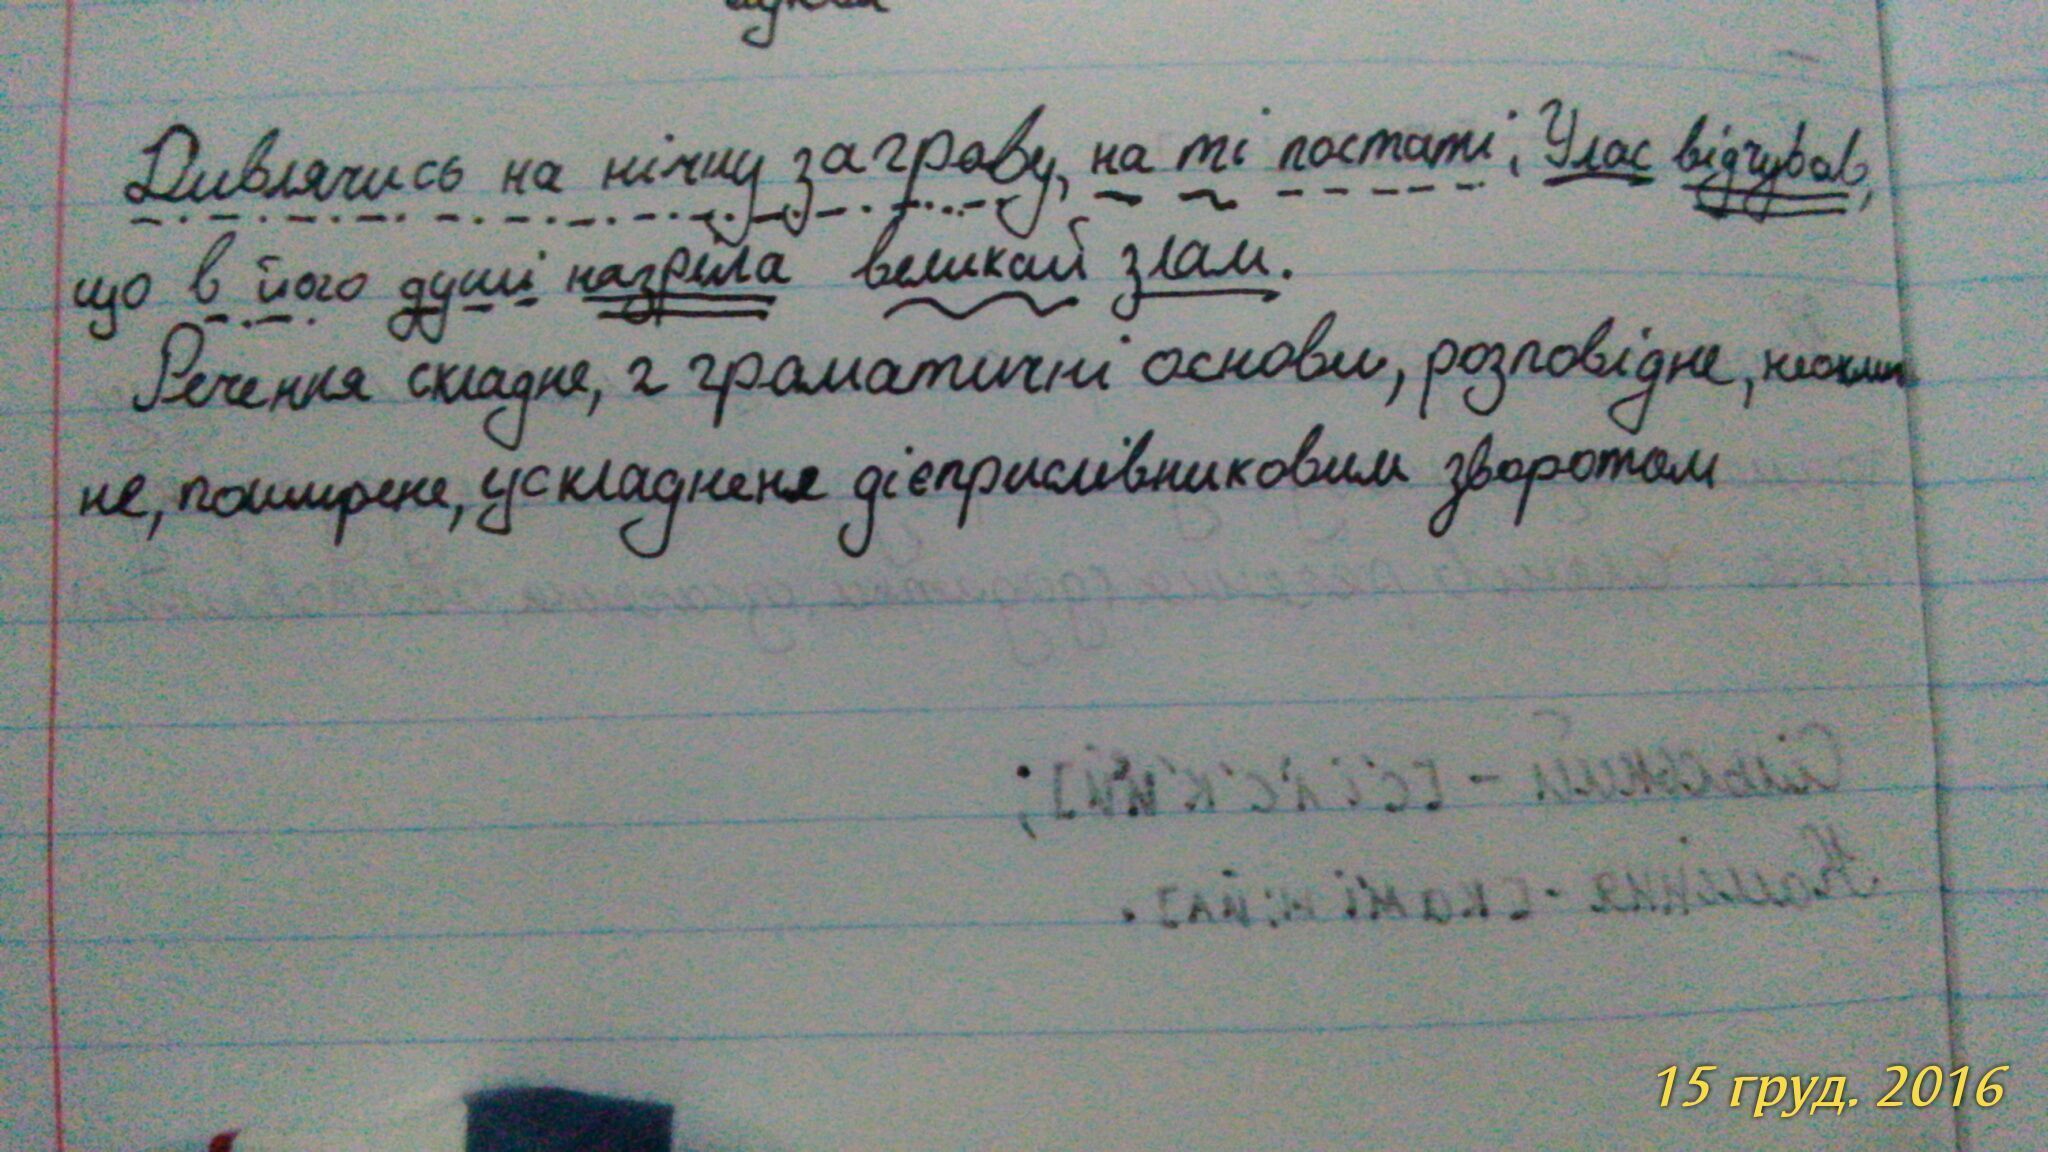 Дивлячись на нічну заграву, на ті постаті, Улас відчував,
що в його душі назріла великий злам.
Речення складне, 2 граматичні основи, розповідне, неоклич
не, поширене, ускладнене дієприслівниковим зворотом
Сільський - [с'іл'с'кий];
Каміння - [кам'ін':а].
15 груд. 2016